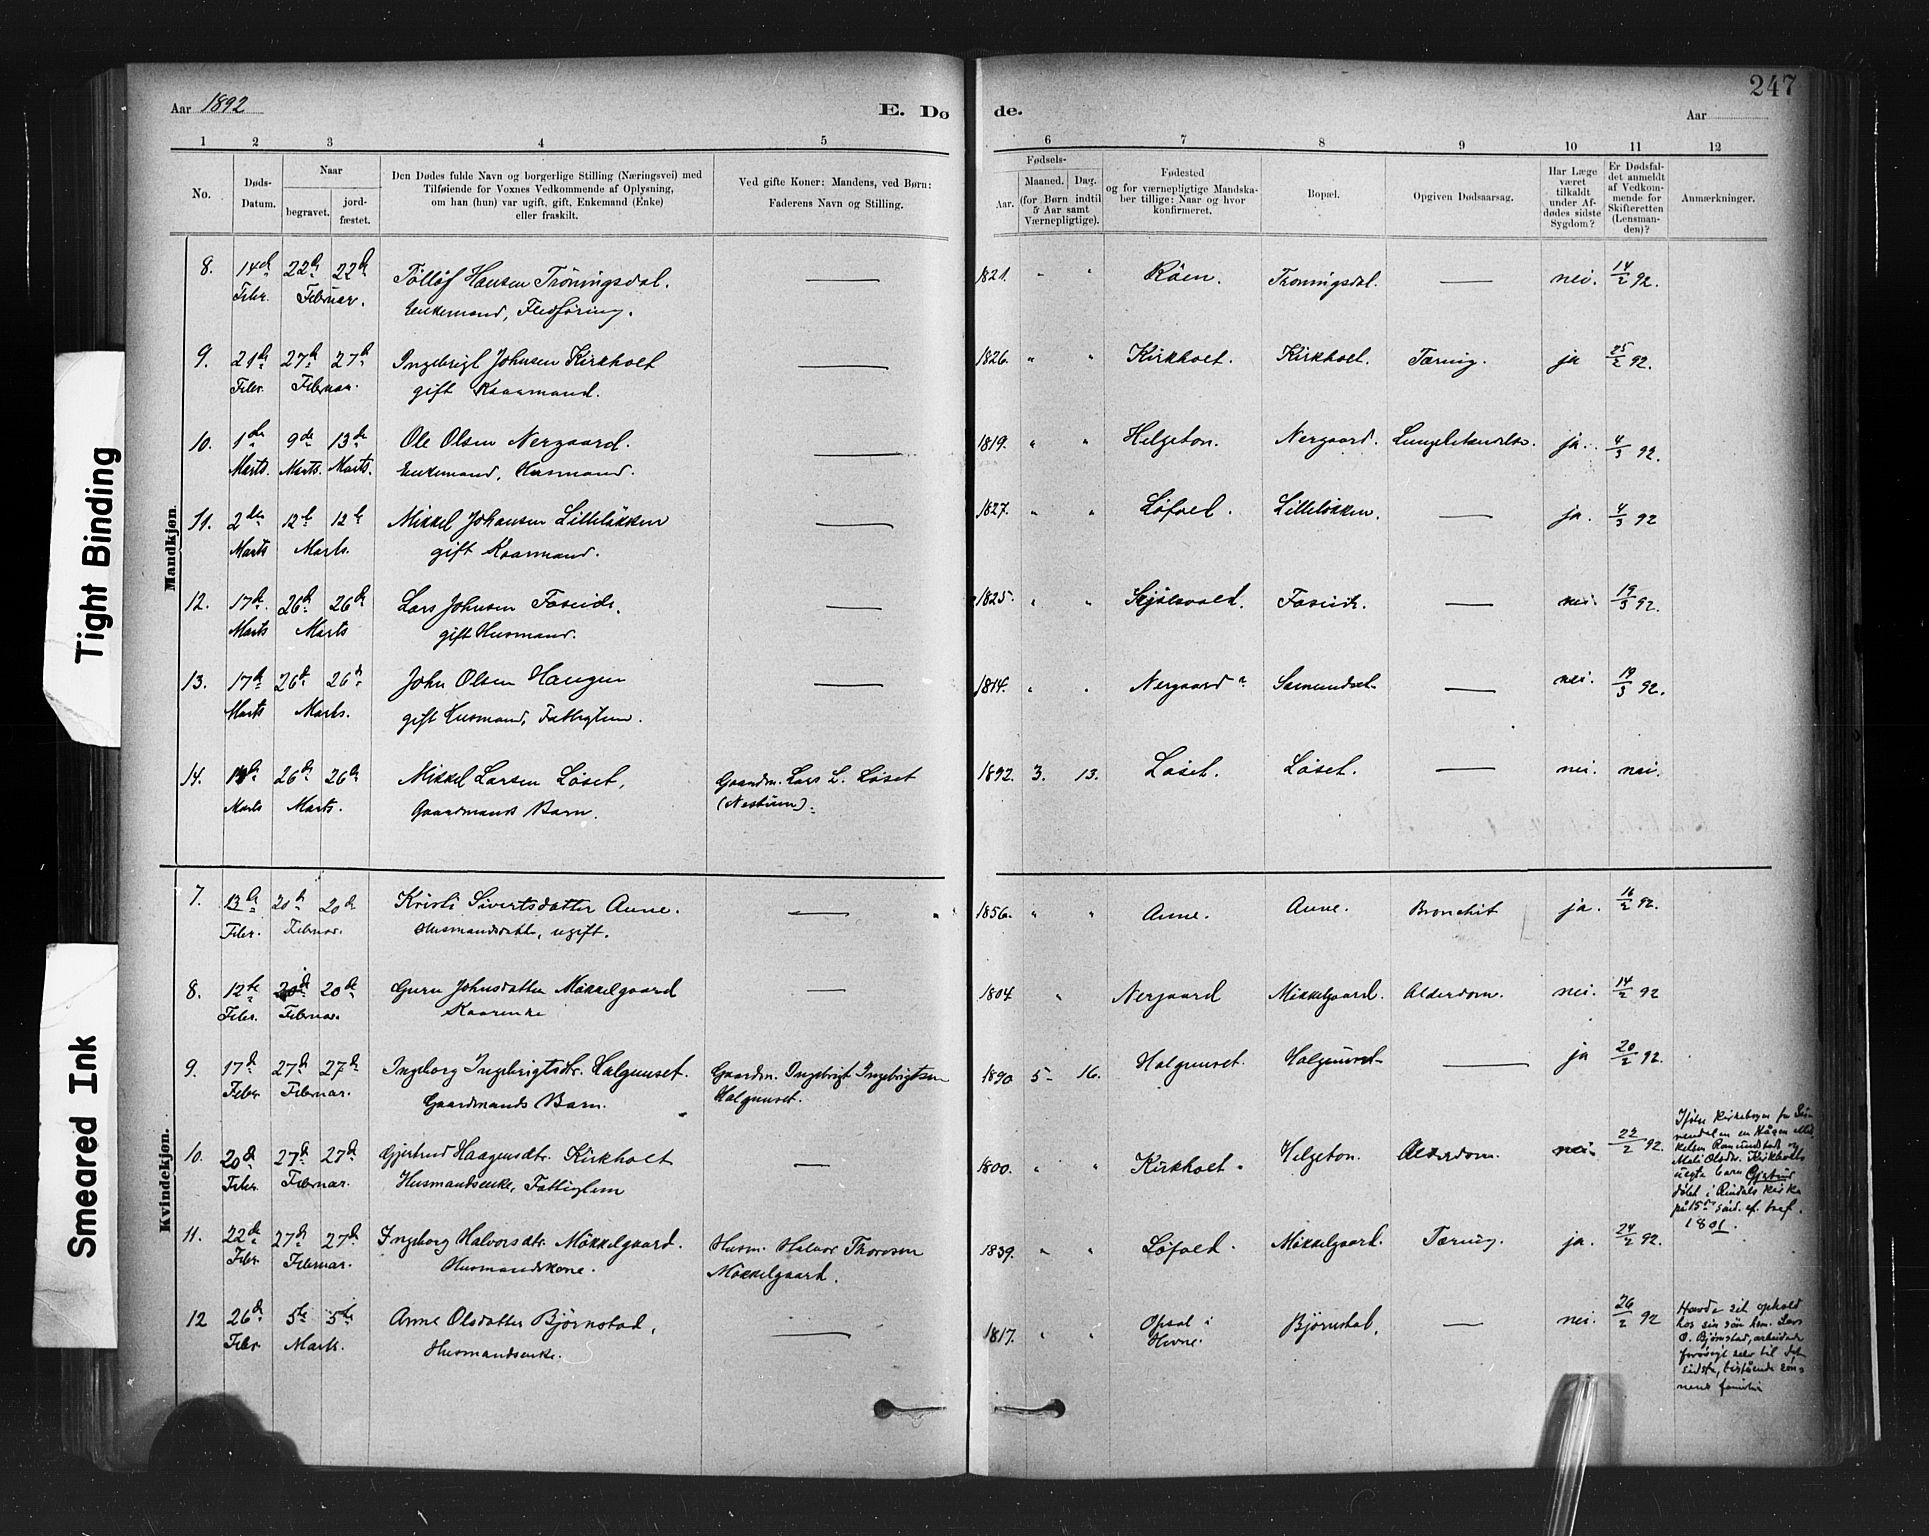 247
Aar 1892
E. Dø
de.
Aar
1 2 3 4 5 6 7 8 9 10 11 12
No.
Døds-
Datum.
Naar
begravet.
jord-
fæstet.
Den Dødes fulde Navn og borgerlige Stilling (Næringsvei) med
Tilføiende for Voxnes Vedkommende af Oplysning,
om han (hun) var ugift, gift, Enkemand (Enke)
eller fraskilt.
Ved gifte Koner: Mandens, ved Børn:
Faderens Navn og Stilling.
Fødsels-
Aar.
Maaned.
Dag.
(for Børn indtil
5 Aar samt
Værnepligtige).
Fødested
og for værnepligtige Mandska-
ber tillige: Naar og hvor
konfirmeret.
Bopæl.
Opgiven Dødsaarsag.
Har Læge
været
tilkaldt
under Af-
dødes sidste
Sygdom?
Er Dødsfal-
det anmeldt
af Vedkom-
mende for
Skifteretten
(Lensman-
den)?
Anmærkninger.
Mandkjøn.
8. 14de 22de 22de Tølløf Hansen Trøningsdal. — 1821. " " Røen. Trøningsdal. — nei. 14/2 92.
Febr. Februar. Enkemand, Fledføring.
9. 21de 27de 27de Ingebrigt Johnsen Kirkholt — 1826. " " Kirkholt. Kirkholt. Tæring. ja 25/2 92.
Febr. Februar. gift Kaarmand.
10. 1ste 9de 13de Ole Olsen Nergaard. — 1819. " " Helgeton. Nergaard. Lungebetændelse. ja. 4/3 92.
Marts. Marts. Marts. Enkemand, Husmand.
11. 2den 12te 12te Mikkel Johansen Lilleløkken — 1827. " " Løfald. Lilleløkken. — ja. 4/3 92
Marts Marts. gift Kaarmand.
12. 17de 26de 26de Lars Johnsen Foseide. — 1825. " " Skjølsvold. Foseide. — nei. 19/3 92.
Marts Marts gift Husmand.
13. 17de 26de 26de John Olsen Haugen — 1814. " " Nergaard Sæmundset — nei. 19/3 92.
Marts Marts. gift Husmand, Fattiglem.
14. 26de 26de Mikkel Larsen Løset, Gaardm. Lars L. Løset 1892. 3. 13. Løset. Løset. — nei. nei.
Marts Marts. Gaardmands Barn. (Nestuen).
Kvindekjøn.
7. 13de 20de 20de Kristi Sivertsdatter Aune. — 1856. " " Aune. Aune. Bronchit ja. 16/2 92.
Febr. Februar. Husmandsdatter, ugift.
8. 12te 20de 20de Guru Johnsdatter Møkkelgaard — 1804 " Nergaard Møkkelgaard. Alderdom. nei. 14/2 92
Febr. Februar. Kaarenke
9. 17de 27de 27de Ingeborg Ingebrigtsdtr. Halgunset. Gaardm. Ingebrigt Ingebrigtsen 1890 5 16. Halgunset. Halgunset — ja 20/2 92.
Febr Februar. Gaardmands Barn. Halgunset.
10. 20de 27de 27de Gjertrud Haagensdtr. Kirkholt — 1800. " " Kirkholt Helgeton. Alderdom. nei. 22/2 92.
Febr. Februar. Husmandsenke, Fattiglem
Ifølge kirkebogen for Sur-
nendalen en Hågen Mik-
kelsen Romundstads og
Mali Olsdtr. Kirkholts
uegte barn Gjertrud
døbt i Rindals kirke
på 15de sønd. ef. tref.
1801.
11. 22de 27de 27de Ingeborg Halvorsdtr. Møkkelgaard. Husm. Halvor Thoresen 1839. " " Løfald. Møkkelgaard. Tæring. ja. 24/2 92.
Febr. Februar. Husmandskone. Møkkelgaard.
12 26de 5te 5te Anne Olsdatter Bjørnstad, — 1817. " " Opsal i Bjørnstad, — nei. 26/2 92
Febr Marts. Husmandsenke. Hevne.
Havde sit ophold
hos sin søn hm. Lars
O. Bjørnstad, arbeidede
forøvrigt selv til det
sidste, bistående søn-
nens familie
Tight Binding
Smeared Ink